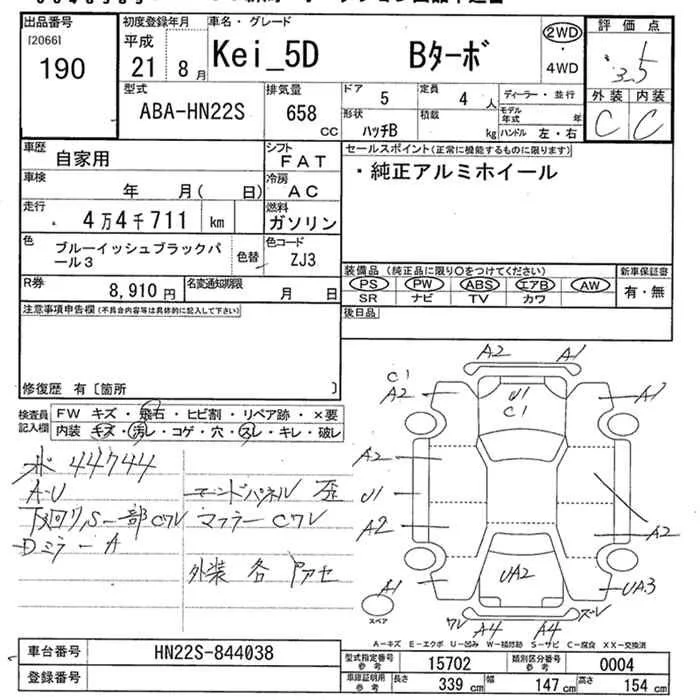 出品番号
[2066]
190
初度登録年月
平成
21年 8月
車名・グレード
Kei_5D Bターボ
2WD
・
4WD
評価点
3.5
外装 内装
C C
型式
ABA-HN22S
排気量
658
CC
ドア
5
定員
4人
形状
ハッチB
積載
kg
ディーラー・並行
モデル年式 年
ハンドル 左・右
車歴
自家用
シフト
FAT
車検
年 月( 日)
冷房
AC
走行
4万4千711 km
燃料
ガソリン
色
ブルーイッシュブラックパール3
色替
色コード
ZJ3
R券
8,910円
名変通知期限
月 日
セールスポイント(正常に機能するものに限ります)
・純正アルミホイール
装備品(純正品に限り○をつけてください)
PS PW ABS エアB AW
SR ナビ TV カワ
新車保証書
有・無
後日品
注意事項申告欄(不具合内容等は具体的に記入して下さい)
修復歴 有〔箇所 〕
検査員記入欄
FW キズ・飛石・ヒビ割・リペア跡・×要
内装 キズ・汚レ・コゲ・穴・スレ・キレ・破レ
44744
A-U
エンドパネル 歪
下廻りS一部Cワレ
マフラーCワレ
Dミラー A
外装 各
A2 A1
C1
A2
U1
C1
A1
A2
U1
A2
A2
UA2
A1
UA3
ワレ
A4 A4
ズレ
スペア
A-キズ E-エクボ U-凹み W-補修跡 S-サビ C-腐食 XX-交換済
車台番号
HN22S-844038
登録番号
型式指定番号参考
15702
類別区分番号参考
0004
車庫証明用参考
長さ 339 cm
幅 147 cm
高さ 154 cm